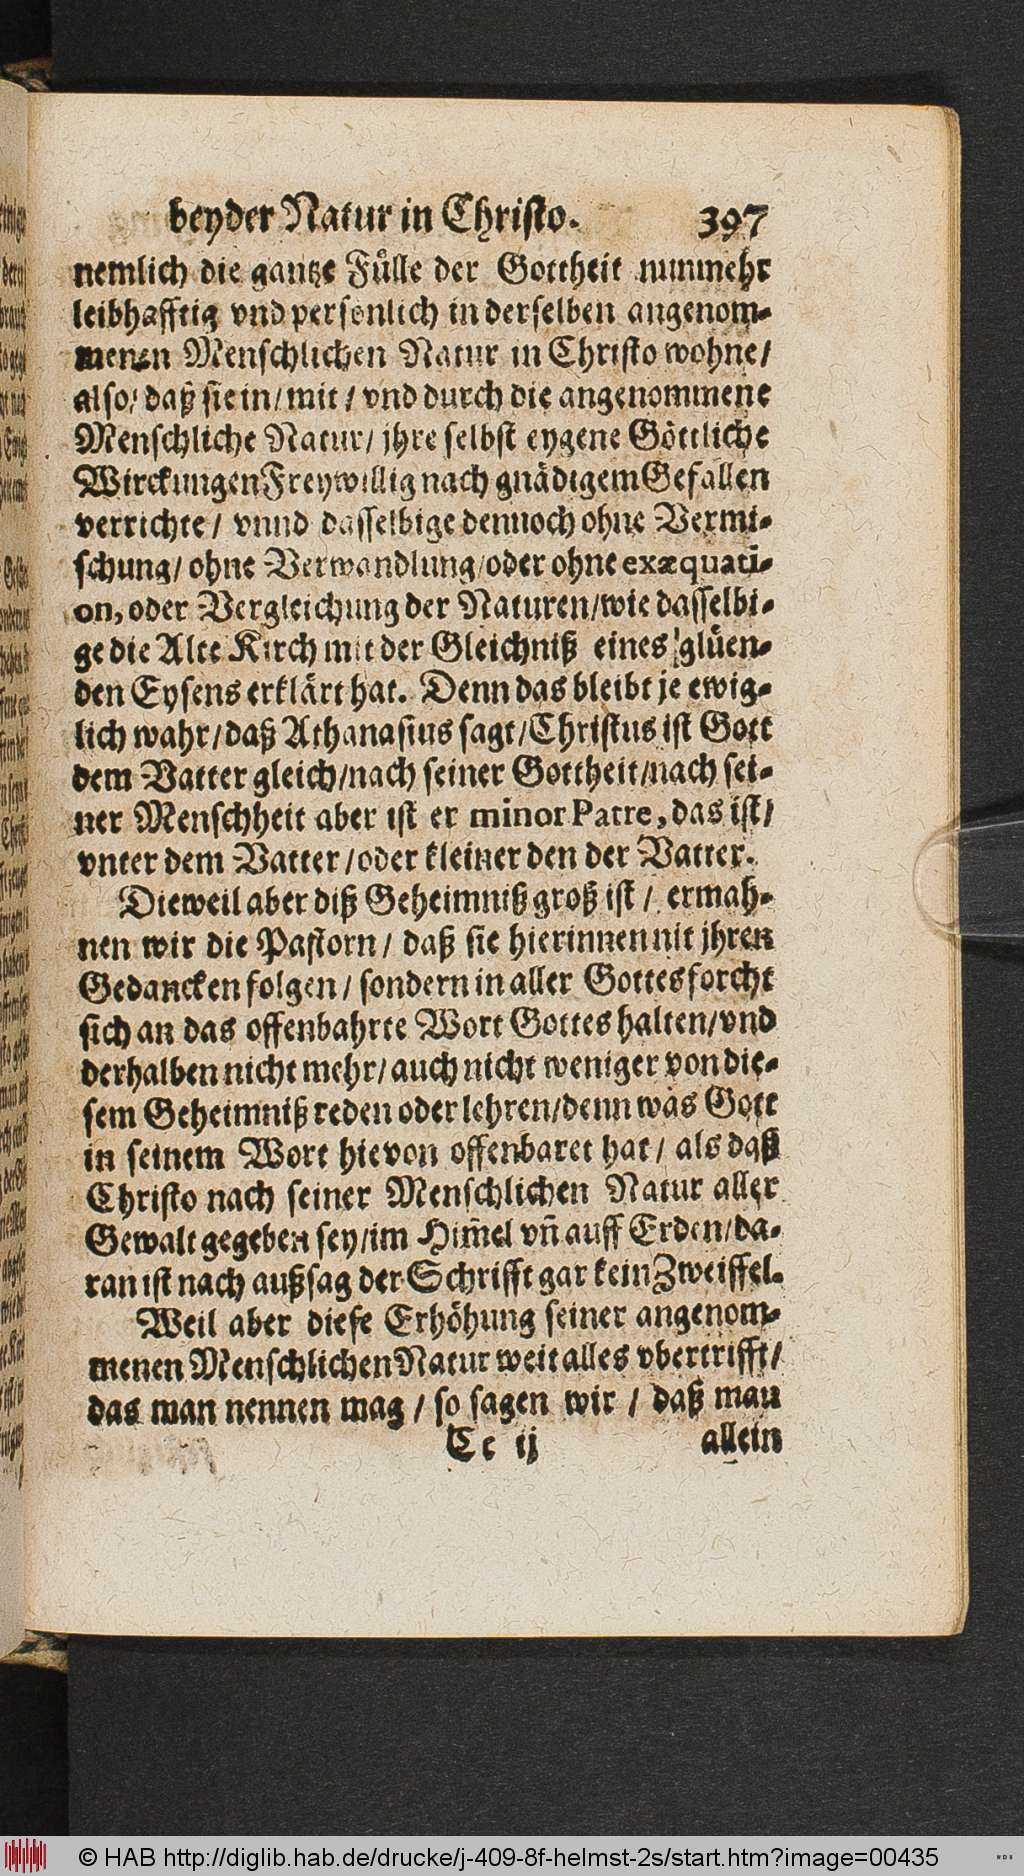 beyder Natur in Christo. 397
nemlich die gantze Fülle der Gottheit nunmehr
leibhafftig vnd persönlich in derselben angenom-
menen Menschlichen Natur in Christo wohne/
also/ daß sie in/ mit/ vnd durch die angenommene
Menschliche Natur/ jhre selbst eygene Göttliche
Wirckungen Freywillig nach gnädigem Gefallen
verrichte/ vnnd dasselbige dennoch ohne Vermi-
schung/ ohne Verwandlung/ oder ohne exæquati-
on, oder Vergleichung der Naturen/ wie dasselbi-
ge die Alte Kirch mit der Gleichniß eines glüen-
den Eysens erklärt hat. Denn das bleibt je ewig-
lich wahr/ daß Athanasius sagt/ Christus ist Gott
dem Vatter gleich/ nach seiner Gottheit/ nach sei-
ner Menschheit aber ist er minor Patre, das ist/
vnter dem Vatter/ oder kleiner den der Vatter.
Dieweil aber diß Geheimniß groß ist/ ermah-
nen wir die Pastorn/ daß sie hierinnen nit jhren
Gedancken folgen/ sondern in aller Gottesforcht
sich an das offenbahrte Wort Gottes halten/ vnd
derhalben nicht mehr/ auch nicht weniger von die-
sem Geheimniß reden oder lehren/ denn was Gott
in seinem Wort hievon offenbaret hat/ als daß
Christo nach seiner Menschlichen Natur aller
Gewalt gegeben sey/ im Him̃el vñ auff Erden/ da-
ran ist nach außsag der Schrifft gar kein Zweiffel.
Weil aber diese Erhöhung seiner angenom-
menen Menschlichen Natur weit alles vbertrifft/
das man nennen mag/ so sagen wir/ daß man
Cc ij allein
© HAB http://diglib.hab.de/drucke/j-409-8f-helmst-2s/start.htm?image=00435